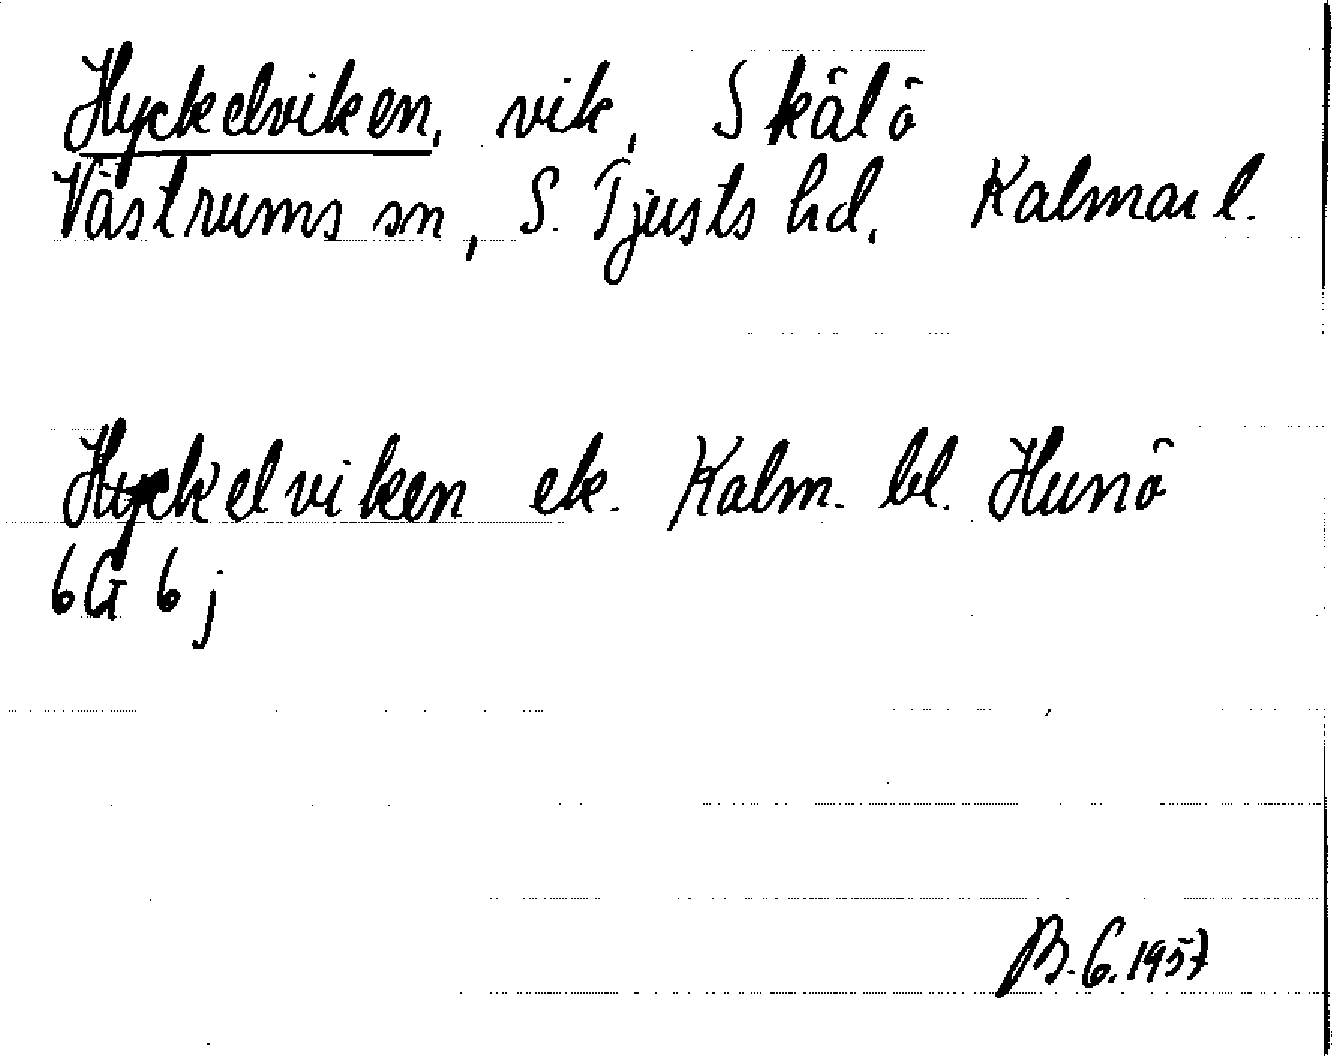 Hyckelviken, vik, Skälö
Västrums sn, S. Tjusts hd. Kalmar l.
Hyckelviken ek. Kalm. bl. Hunö
6G 6j
B.G. 1957